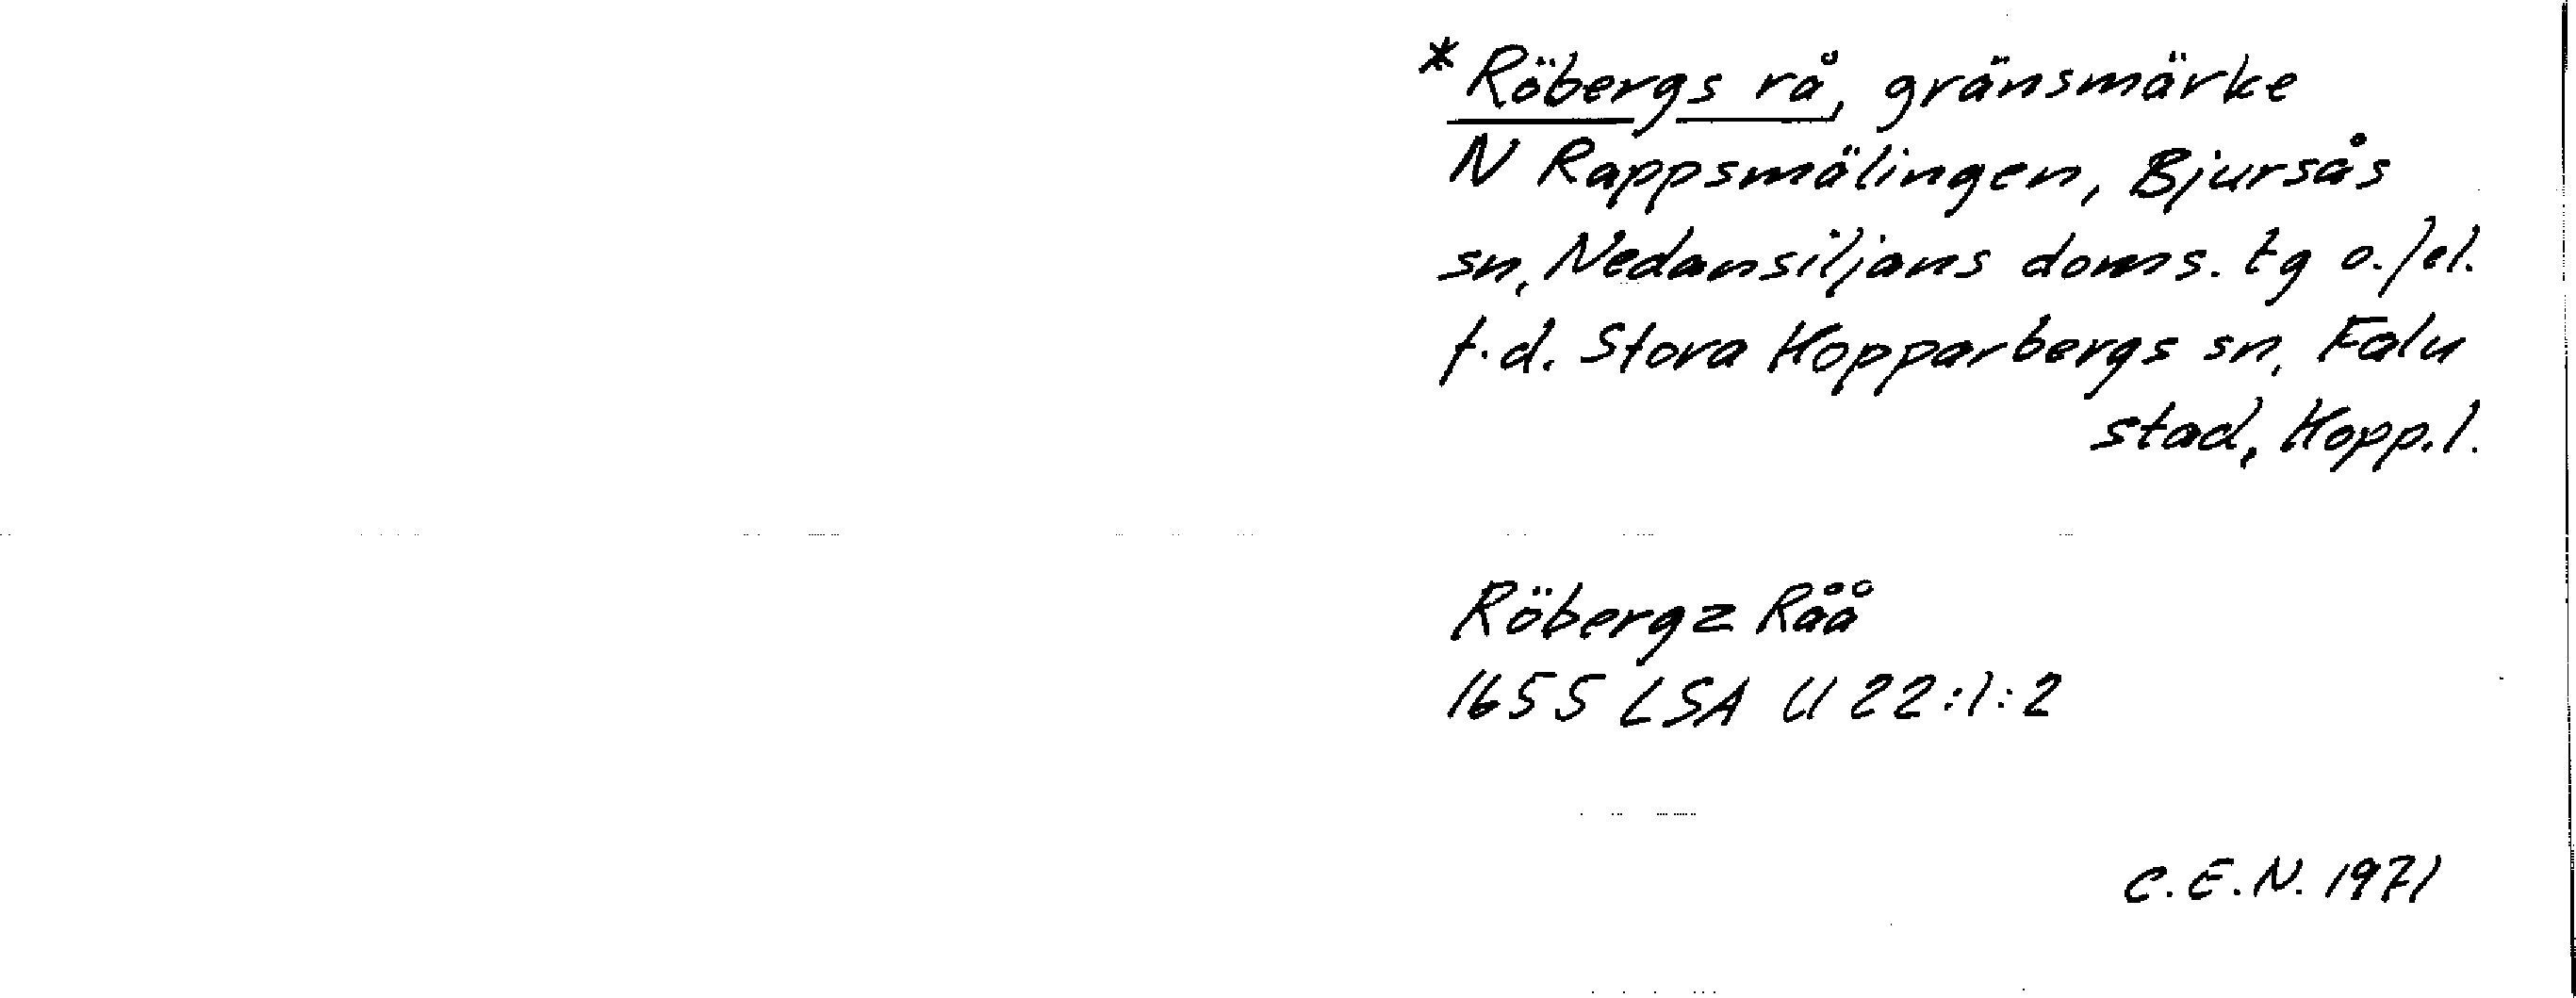 * Röbergs rå, gränsmärke
N Rappsmälingen, Bjursås
sn, Nedansiljans doms. tg o./el.
f.d. Stora Kopparbergs sn, Falu
stad, Kopp.l.
Röbergz Råå
1655 LSA U 22:1:2
C.E.N. 1971